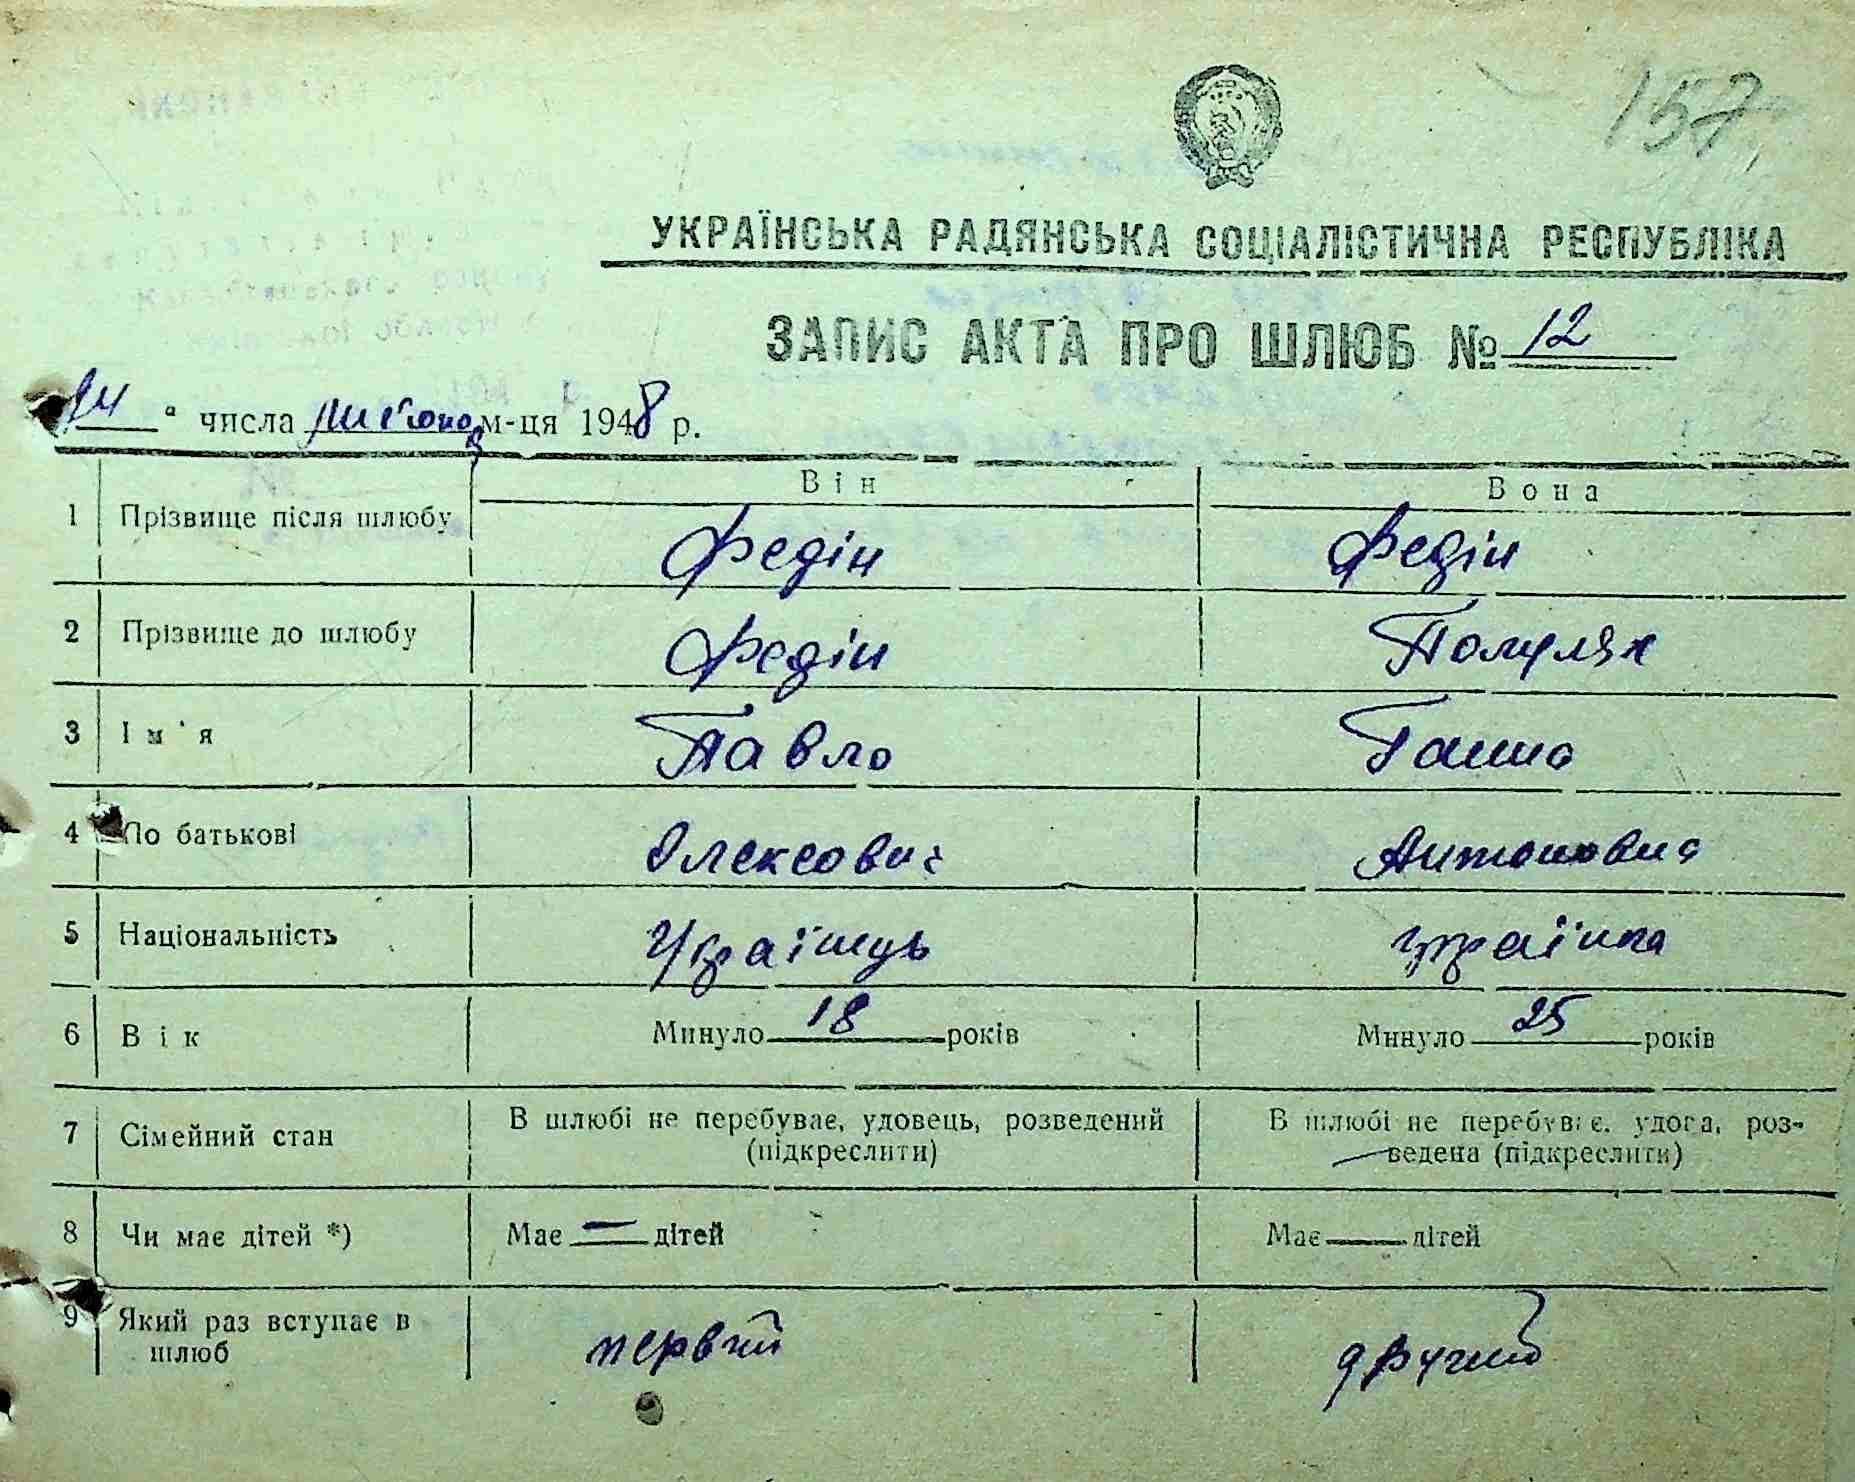 157
УКРАЇНСЬКА РАДЯНСЬКА СОЦІАЛІСТИЧНА РЕСПУБЛІКА
ЗАПИС АКТА ПРО ШЛЮБ № 12
числа м-ця 1948 р.
Він Вона
1 Прізвище після шлюбу Федін Федін
2 Прізвище до шлюбу Федін
3 Ім'я Павло Ганна
4 По батькові Олексович Антоновна
5 Національність Українець українка
6 Вік Минуло 18 років Минуло 25 років
7 Сімейний стан В шлюбі не перебуває, удовець, розведений В шлюбі не перебуває, удова, роз-
(підкреслити) ведена (підкреслити)
8 Чи має дітей *) Має — дітей Має дітей
9 Який раз вступає в первий другий
шлюб